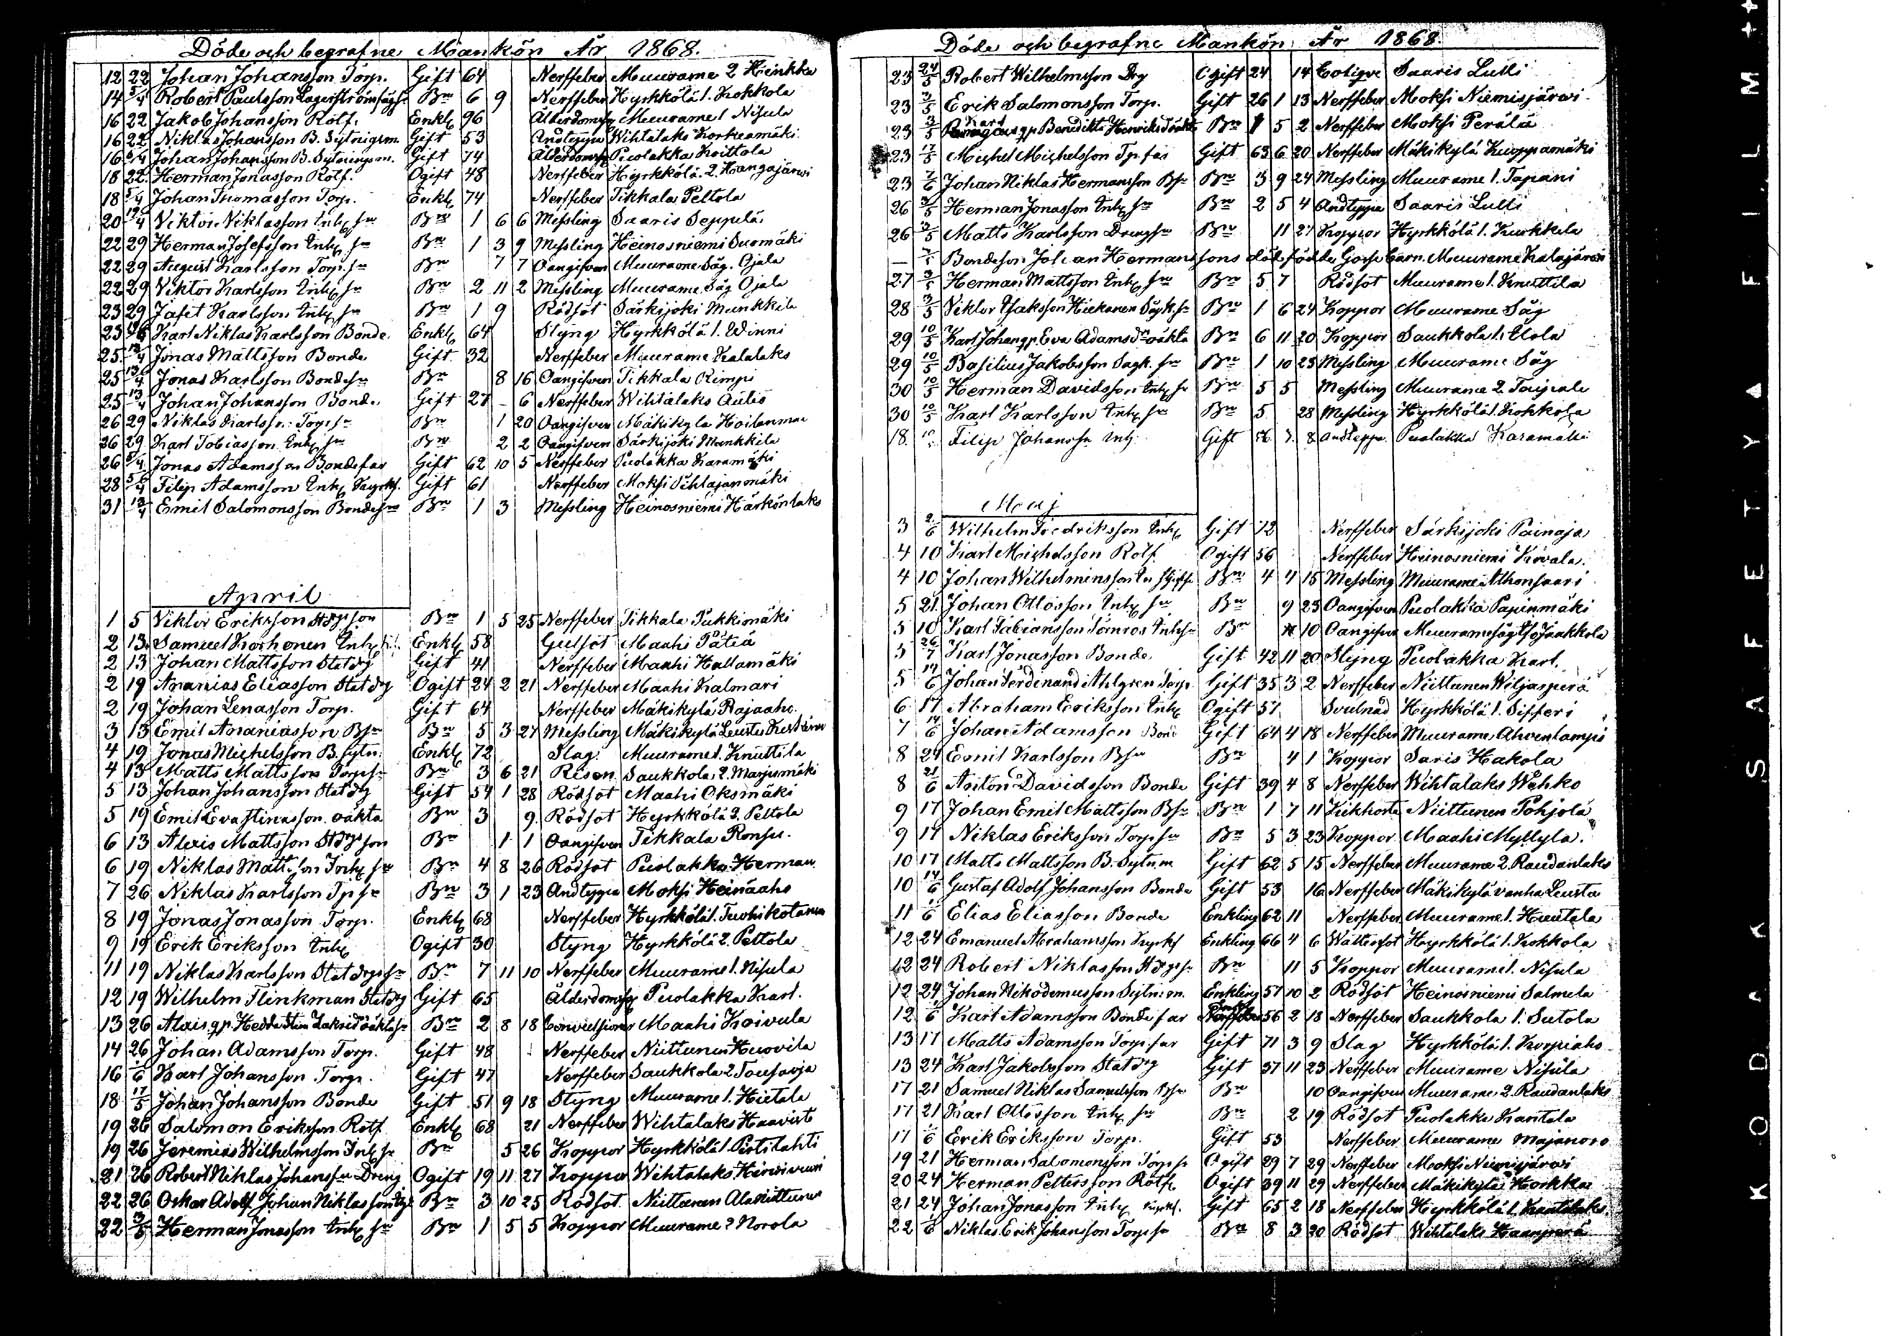 Döde och begrafne Mankön År 1868.
12 22 Johan Johansson Torp. Gift 64 Nerffeber Muurame 2 Heinkka
14 5/4 Robert Paulsson Lagerström Bn 6 9 Nerffeber Hyrkkölä 1. Kokkola
16 22 Jakob Johansson Rotf. Enkl 96 Ålderdom Muurame 1 Nisula
16 22 Niklas Johansson B. Sytningsm. Gift 53 Andtäppa Wihtalaks Korkeamäki
16 5/4 Johan Johansson B. Sytningsm. Gift 74 Ålderdom Puolakka Koittola
18 22 Herman Jonasson Rotf. Ogift 48 Nerffeber Hyrkkölä 2. Kangasjärvi
18 5/4 Johan Thomasson Torp. Enkl 74 Nerffeber Tikkala Peltola
20 19/4 Viktor Niklasson Inh sn Bn 1 6 6 Messling Saaris Seppälä
22 29 Herman Josefsson Inh sn Bn 1 3 9 Messling Heinosniemi Suomäki
22 29 August Karlsson Torp. sn Bn 7 7 Oangifven Muurame Såg. Ojala
22 29 Viktor Karlsson Inh sn Bn 2 11 2 Messling Muurame Såg Ojala
23 29 Jafet Karlsson Inh sn Bn 1 9 Rödsot Särkijoki Munkkila
23 Karl Niklas Karlsson Bonde Enkl 64 Styng Hyrkkölä 1. Winni
25 13/4 Jonas Mattsson Bonde Gift 32 Nerffeber Muurame Kalalaks
25 13/4 Jonas Karlsson Bonde sn Bn 8 16 Oangifven Tikkala Rimpi
25 13/4 Johan Johansson Bonde Gift 27 - 6 Nerffeber Wihtalaks Aulis
26 29 Niklas Karlsson Torp sn Bn 1 20 Oangifven Mäkikylä
26 29 Karl Tobiasson Inh sn Bn 2 2 Oangifven Särkijoki Munkkila
26 5/4 Jonas Adamsson Bondefar Gift 62 10 5 Nerffeber Puolakka Karamäki
28 5/4 Filip Adamsson Inh Gift 61 Nerffeber Moksi Pihlajamäki
31 13/4 Emil Salomonsson Bonde sn Bn 1 3 Messling Heinosniemi Härkönlaks
April
1 5 Viktor Eriksson Stdrgsson Bn 1 5 25 Nerffeber Tikkala Tukkimäki
2 13 Samuel Korhonen Inh Enkl 58 Gulsot Maahi Pätiä
2 13 Johan Mattsson Statdrg Gift 41 Nerffeber Maahi Hallamäki
2 19 Ananias Eliasson Statdrg Ogift 24 2 21 Nerffeber Maahi Kalmari
2 19 Johan Lenasson Torp. Gift 64 Nerffeber Mäkikylä Rajaaho
3 13 Emil Ananiasson Bsn Bn 5 3 27 Messling Mäkikylä Leustu
4 19 Jonas Michelsson B. Sytn. Enkl 72 Slag Muurame 1. Knuttila
4 13 Matts Mattsson Torp sn Bn 3 6 21 Risen Saukkola 2. Marjumäki
5 13 Johan Johansson Statdrg Gift 54 1 28 Rödsot Maahi Oksmäki
5 19 Emil Eva Stinasson oäkta Bn 3 9 Rödsot Hyrkkölä 3. Peltola
6 13 Alexis Mattsson Stdrgsson Bn 1 1 Oangifven Tikkala Ronsu
6 19 Niklas Matts.son Inh sn Bn 4 8 26 Rödsot Puolakka Herman
7 26 Niklas Karlsson Tp sn Bn 3 1 23 Andtäppa Moksi Heinaaho
8 19 Jonas Jonasson Torp. Enkl 68 Nerffeber Hyrkkölä 1. Tuohikotanen
9 19 Erik Eriksson Inh Ogift 30 Styng Hyrkkölä 2. Peltola
11 19 Niklas Karlsson Statdrg sn Bn 7 11 10 Nerffeber Muurame 1. Nisula
12 19 Wilhelm Flinkman Statdrg Gift 65 Ålderdoms Puolakka Karl.
13 26 Alexis gp Hedda Stina oäkta sn Bn 2 8 18 Convulsioner Maahi Koivula
14 26 Johan Adamsson Torp. Gift 48 Nerffeber Niittunen Huovila
16 1/6 Karl Johansson Torp. Gift 47 Nerffeber Saukkola 2
18 17/5 Johan Johansson Bonde Gift 51 9 18 Styng Muurame 1. Hietala
19 26 Salomon Eriksson Rotf Enkl 68 21 Nerffeber Wihtalaks Haavisto
19 26 Jeremias Wilhelmsson Inh sn Bn 5 26 Koppor Hyrkkölä 1. Pertilahti
21 26 Robert Niklas Johansson Dreng Ogift 19 11 27 Koppor Wihtalaks
22 26 Oskar Adolf Johan Niklasson Bn 3 10 25 Rödsot Niittunen Alaniittunen
22 3/5 Herman Jonasson Inh sn Bn 1 5 5 Koppor Muurame 2 Norola
Döde och begrafne Mankön År 1868.
23 24/5 Robert Wilhelmsson Drg Ogift 24 14 Saaris Lulli
23 3/5 Erik Salomonsson Torp. Gift 26 1 13 Nerffeber Moksi Niemisjärvi
23 3/5 Karl gp Benedikta Henriksd oäkt Bn 1 5 2 Nerffeber Moksi Perälä
23 17/5 Michel Michelsson Tp far Gift 63 6 20 Nerffeber Mäkikylä Kuoppamäki
23 7/6 Johan Niklas Hermansson Bsn Bn 3 9 24 Messling Muurame 1. Tapani
26 3/5 Herman Jonasson Inh sn Bn 2 5 4 Andtäppa Saaris Lulli
26 3/5 Matts Karlsson Dreng sn Bn 11 27 Koppor Hyrkkölä 1. Kukkula
— Bondeson Johan Hermanssons dödfödde Gosse barn. Muurame Kalajärvi
27 3/5 Herman Mattsson Inh sn Bn 5 7 Rödsot Muurame 1. Knuttila
28 3/5 Viktor Isaksson Hiekanen Sågk. sn Bn 1 6 24 Koppor Muurame Såg
29 10/5 Karl Johan gp Eva Adamsdr oäkta Bn 6 11 20 Koppor Saukkola 1. Ulola
29 10/5 Basilius Jakobsson Sagk. sn Bn 1 10 23 Messling Muurame Såg
30 10/5 Herman Davidsson Inh sn Bn 5 5 Messling Muurame 2.
30 10/5 Karl Karlsson Inh sn Bn 5 28 Messling Hyrkkölä 1. Kokkola
18 Filip Johansson Inh Gift 8 Andtäppa Puolakka Karamäki
Maj
3 2/6 Wilhelm Fredriksson Inh Gift 72 Nerffeber Särkijoki Painaja
4 10 Karl Michelsson Rotf Ogift 56 Nerffeber Heinosniemi Kovala
4 10 Johan Wilhelminsson Bn 4 4 15 Messling Muurame Alhonsaari
5 21 Johan Ottosson Inh sn Bn 9 23 Oangifven Puolakka Papinmäki
5 10 Karl Fabiansson Törnros Inh sn Bn 10 Oangifven Muurame såg Jaakkola
5 Karl Jonasson Bonde Gift 42 11 20 Styng Puolakka Karl.
5 14/6 Johan Ferdinand Ahlgren Torp. Gift 35 3 2 Nerffeber Niittunen Wiljasperä
6 17 Abraham Eriksson Inh Ogift 57 Svulnad Hyrkkölä 1. Sifferi
7 14/6 Johan Adamsson Bond Gift 64 4 18 Nerffeber Muurame Ahvenlampi
8 24 Emil Karlsson Bsn Bn 4 1 Koppor Saris Hakola
8 21/6 Anton Davidsson Bonde Gift 39 4 8 Nerffeber Wihtalaks Wehko
9 17 Johan Emil Mattsson Bsn Bn 1 7 11 Kikhosta Niittunen Pohjola
9 17 Niklas Eriksson Torp sn Bn 5 3 23 Koppor Maahi Myllylä
10 17 Matts Mattsson B. Sytnm Gift 62 5 15 Nerffeber Muurame 2. Raudanlaks
10 14/6 Gustaf Adolf Johansson Bonde Gift 53 16 Nerffeber Mäkikylä vanha Leusta
11 Elias Eliasson Bonde Enkling 62 11 Nerffeber Muurame 1. Huutola
12 24 Emanuel Abrahamsson Enkling 66 4 6 Wattersot Hyrkkölä 1. Kokkola
12 24 Robert Niklasson Stdrg sn Bn 11 5 Koppor Muurame 1. Nisula
12 24 Johan Nikodemusson Sytnism. Enkling 57 10 2 Rödsot Heinosniemi Salmela
12 Karl Adamsson Bondefar Enkl 56 2 18 Nerffeber Saukkola 1. Sutola
13 17 Matts Adamsson Torp. far Gift 71 3 9 Slag Hyrkkölä 1. Korpiaho
13 24 Karl Jakobsson Statdrg Gift 57 11 23 Nerffeber Muurame Nisula
17 21 Samuel Niklas Samuelsson Bsn Bn 10 Oangifven Muurame 2. Raudanlaks
17 21 Karl Ottosson Inh sn Bn 2 19 Rödsot Puolakka Kantala
17 Erik Eriksson Torp. Gift 53 Nerffeber Muurame Majanoro
19 21 Herman Salomonsson Torp sn Ogift 29 7 29 Nerffeber Moksi Niemisjärvi
20 24 Herman Pettersson Rotf. Ogift 39 11 29 Nerffeber Mäkikylä Horkka
21 24 Johan Jonasson Inh Gift 65 2 18 Nerffeber Hyrkkölä 1.
22 Niklas Erik Johansson Torp sn Bn 8 3 20 Rödsot Wihtalaks Haanperä
KODAK SAFETY ▲ FILM